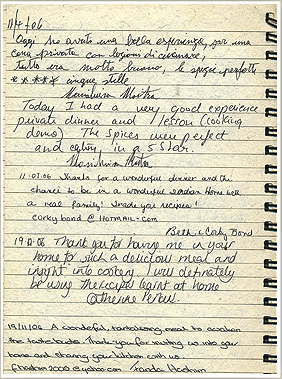 11/4/06
Oggi ho avuto una bella esperienza, per una
cena privata con lezioni di cucinare,
tutto era molto buono, le spezie perfette
***** cinque stelle
Today I had a very good experience
private dinner and lesson (cooking
demo) The Spices were perfect
and in a 5 star.
11.07.06 Thanks for a wonderful dinner and the
chance to be in a wonderful Indian Home with
a real family! Great recipes!
corkybond@HOTMAIL.COM
Beth & Corky Bond
Thank you for having me in your
home for such a delicious meal and
insight into cookery. I will definately
be using the recipes again at home
Catherine
19/11/06 A wonderful, tantalising meal to awaken
the tastebuds. Thank you for inviting us into your
home and sharing your kitchen with us.